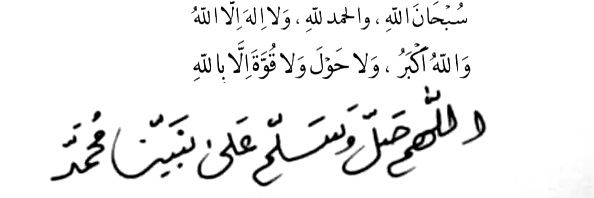 سُبْحَانَ اللّٰهِ ، والحمد للّٰهِ ، وَلا إلهَ إلَّا اللّٰهُ
وَاللّٰهُ أَكْبَرُ ، وَلا حَوْلَ وَلا قُوَّةَ إِلَّا بِاللّٰهِ
اللّٰهم صَلِّ وَسَلِّم عَلىٰ نَبيِّنا مُحمَّد